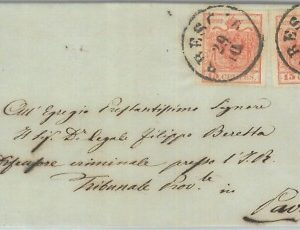 BRESCIA
29
10
15 CENTES.
15
All' Egregio Prestantissimo Signore
Il Sig. Dr. Legale Filippo Beretta
criminale presso l' I. R.
Tribunale Prov.le in
Pav